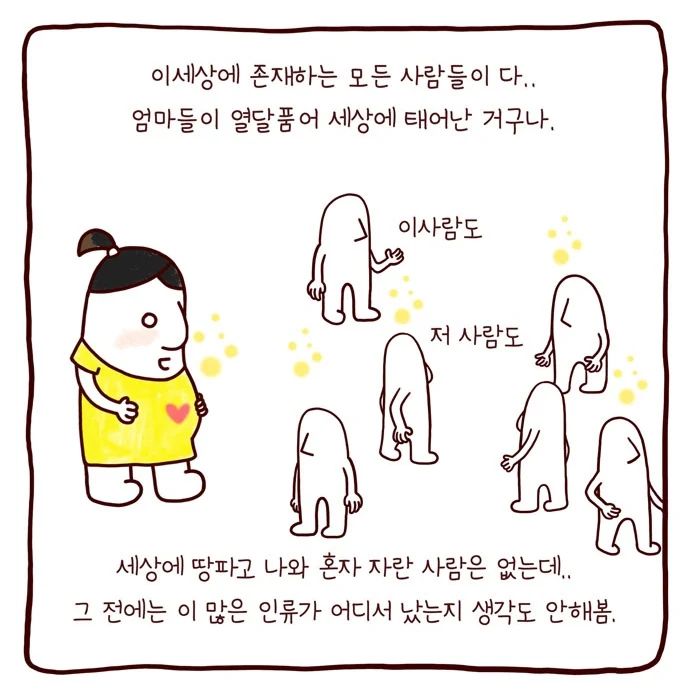 이세상에 존재하는 모든 사람들이 다..
엄마들이 열달품어 세상에 태어난 거구나.
이사람도
저 사람도
세상에 땅파고 나와 혼자 자란 사람은 없는데..
그 전에는 이 많은 인류가 어디서 났는지 생각도 안해봄.